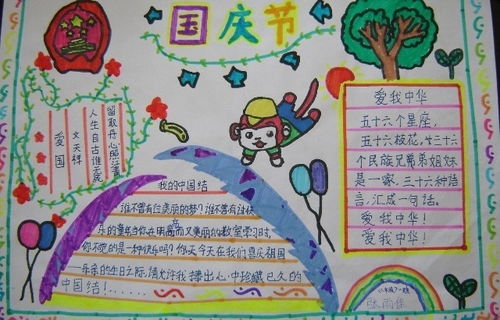 国庆节
爱国
文天祥
人生自古谁无死
留取丹心照汗青
爱我中华
五十六个星座,
五十六枝花,五十六
个民族兄弟姐妹
是一家,五十六种语
言,汇成一句话。
爱我中华!
爱我中华!
我的中国结
谁不曾有过美丽的梦?谁不曾有过快
乐的童年当你在明亮而又美丽的教室学习时,
你不觉的是一种快乐吗?今天在我们喜庆祖国
的生日之际,请允许我捧出心中珍藏已久的
中国结!......